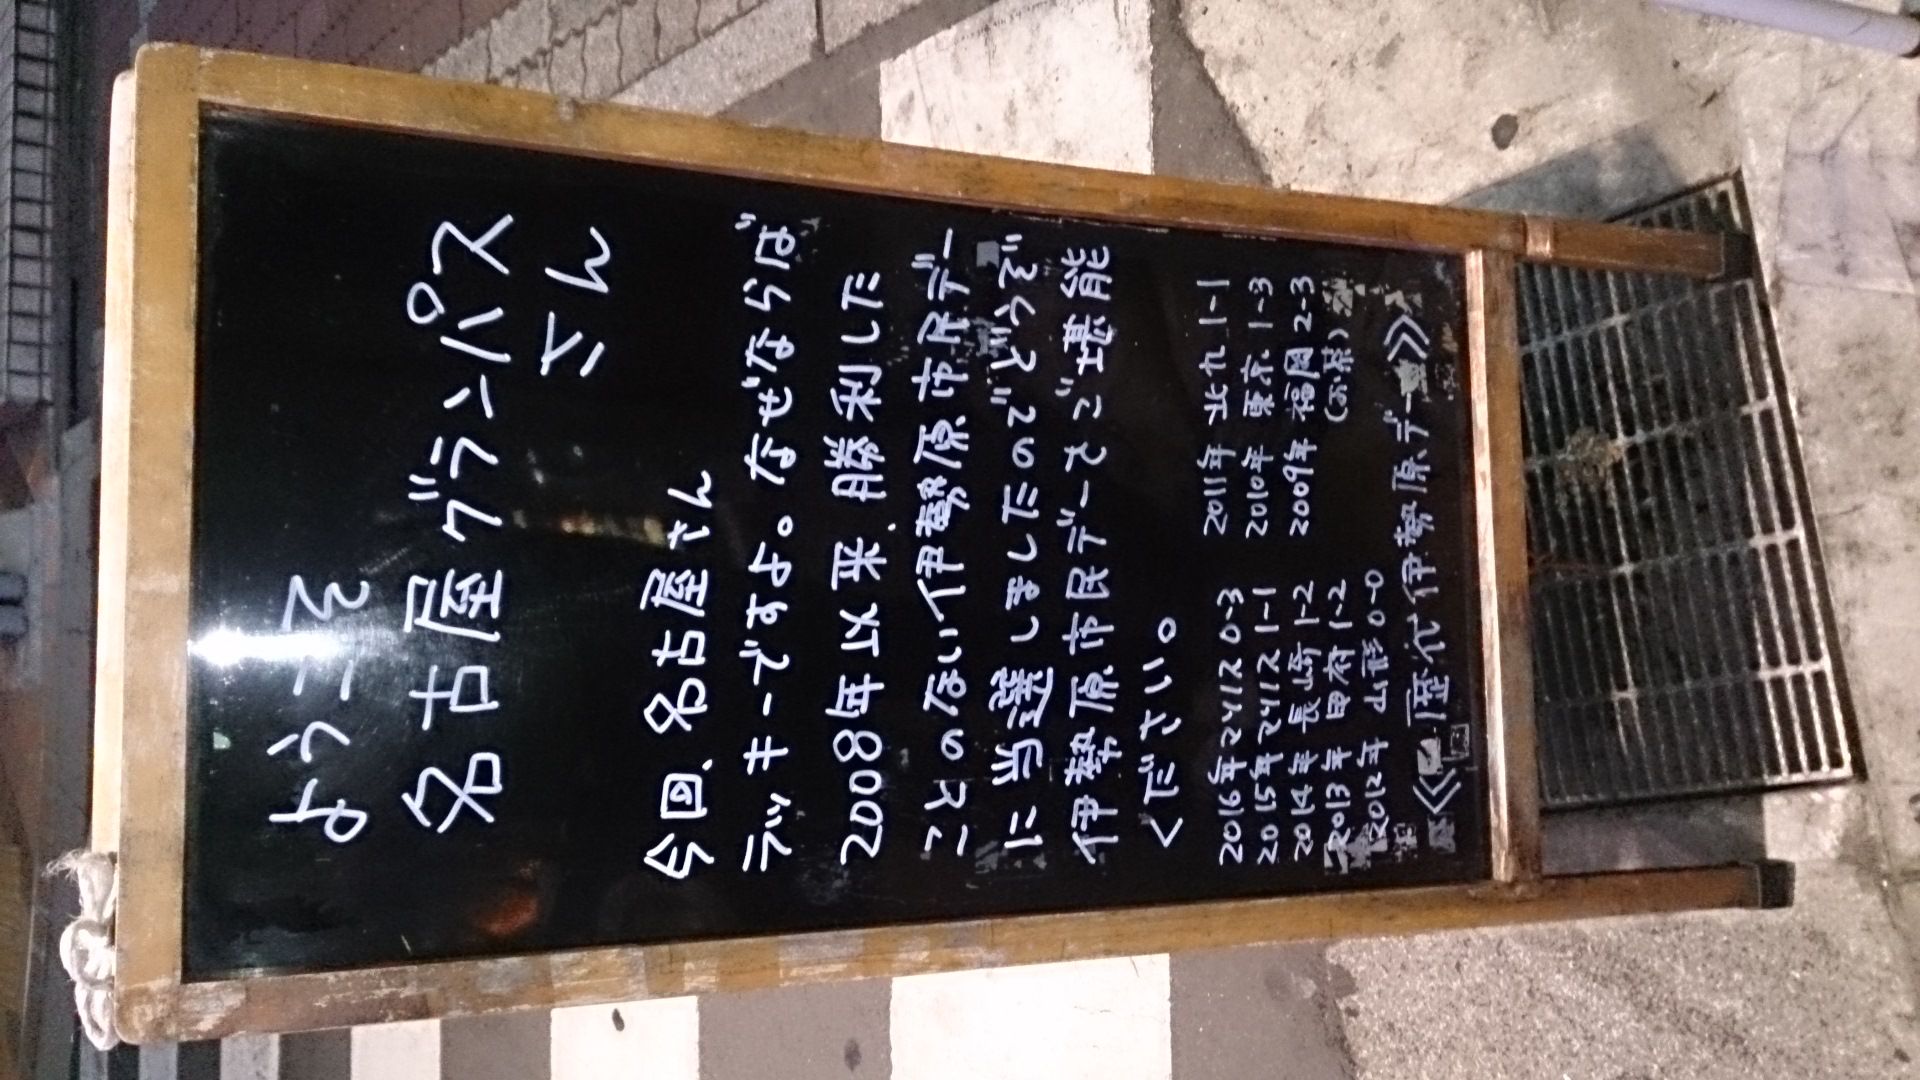 ようこそ
名古屋グランパス
さん
今回、名古屋さん
ラッキーですよ。なぜならば
2008年以来、勝利した
ことのない伊勢原市民デー
に当選しましたのでどうぞ
伊勢原市民デーをご堪能
ください。
2016年 マリノス 0-3
2015年 マリノス 1-1
2014年 長崎 1-2
2013年 甲府 1-2
2012年 山形 0-0
2011年 北九 1-1
2010年 東京 1-3
2009年 福岡 2-3
《歴代伊勢原デー》